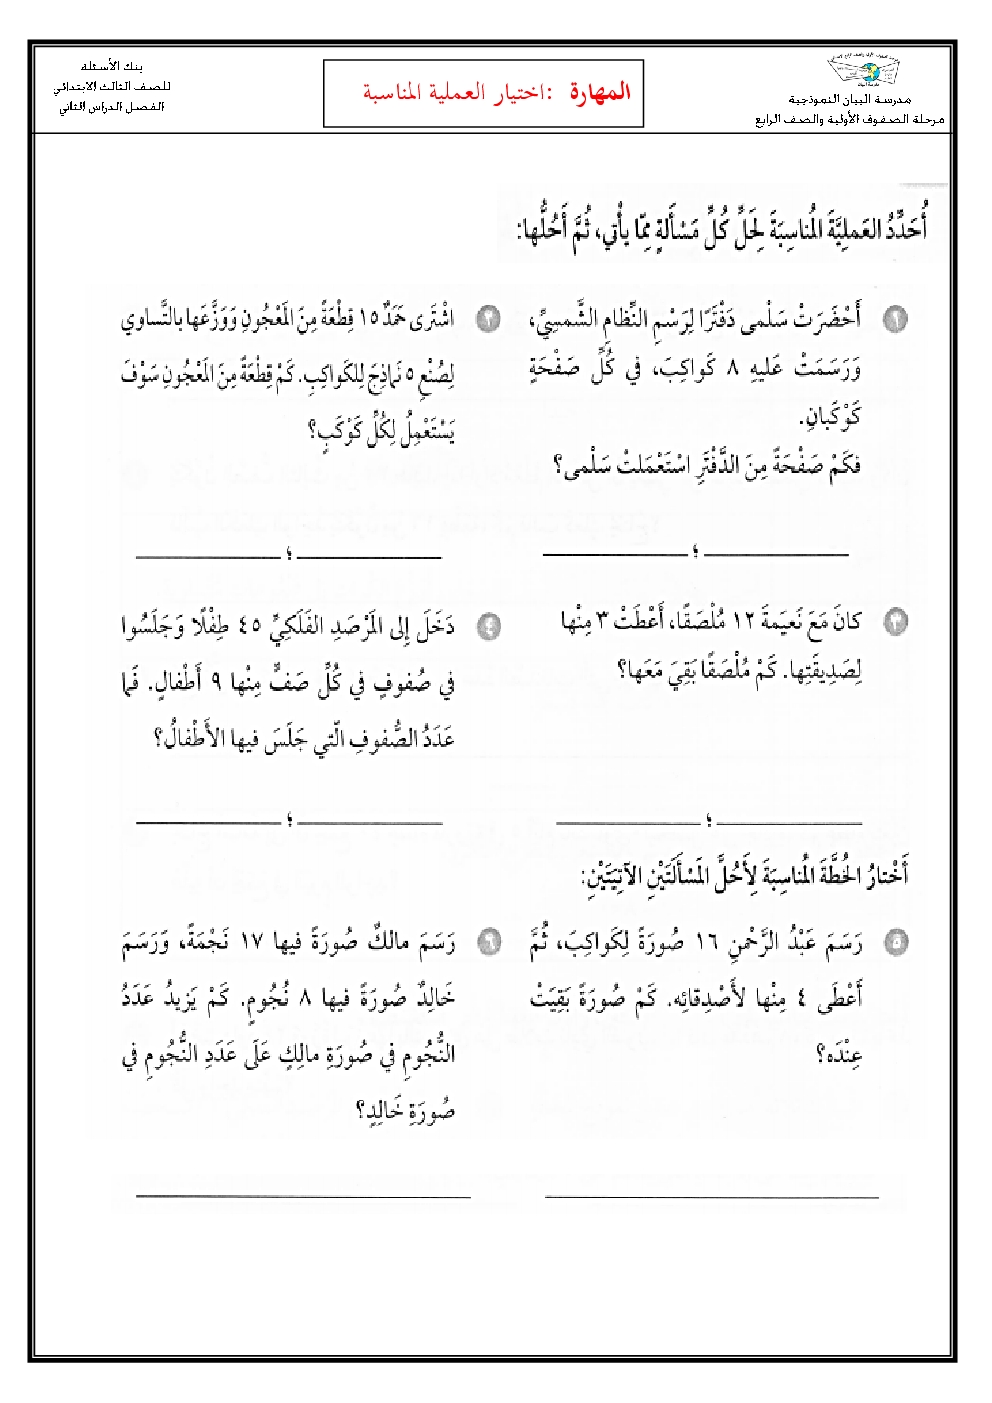 مدرسة البيان النموذجية
مرحلة الصفوف الأولية والصف الرابع
المهارة :اختيار العملية المناسبة
بنك الأسئلة
للصف الثالث الابتدائي
الفصل الدراس الثاني
أُحَدِّدُ العَمليَّةَ المُناسِبَةَ لِحَلِّ كُلِّ مَسْأَلةٍ مِمّا يأْتي، ثُمَّ أَحُلُّها:
١ أَحْضَرَتْ سَلْمى دَفْتَرًا لِرَسْمِ النِّظامِ الشَّمسِيِّ،
وَرَسَمَتْ عَليهِ ٨ كَواكِبَ، في كُلِّ صَفْحَةٍ
كَوْكَبانِ.
فكَمْ صَفْحَةً مِنَ الدَّفْتَرِ اسْتَعْمَلتْ سَلْمى؟
______ ؛ ______
٢ اشْتَرى حَمَدٌ ١٥ قِطْعَةً مِنَ المَعْجُونِ وَوَزَّعَها بالتَّساوي
لِصُنْعِ ٥ نَماذِجَ لِلكَواكِبِ. كَمْ قِطْعَةً مِنَ المَعْجُونِ سَوْفَ
يَسْتَعْمِلُ لِكُلِّ كَوْكَبٍ؟
______ ؛ ______
٣ كانَ مَعَ نَعيَمةَ ١٢ مُلْصَقًا، أَعْطَتْ ٣ مِنْها
لِصَدِيقَتِها. كَمْ مُلْصَقًا بَقِيَ مَعَها؟
______ ؛ ______
٤ دَخَلَ إلى المَرْصَدِ الفَلَكِيِّ ٤٥ طِفْلًا وَجَلَسُوا
في صُفوفٍ في كُلِّ صَفٍّ مِنْها ٩ أَطْفالٍ. فَما
عَدَدُ الصُّفوفِ الّتي جَلَسَ فيها الأَطْفالُ؟
______ ؛ ______
أَخْتارُ الخُطَّةَ المُناسِبَةَ لِأَحُلَّ المَسْأَلَتَيْنِ الآتِيَتَيْنِ:
٥ رَسَمَ عَبْدُ الرَّحْمنِ ١٦ صُورَةً لِكَواكِبَ، ثُمَّ
أَعْطَى ٤ مِنْها لأَصْدِقائِه. كَمْ صُورَةً بَقِيَتْ
عِنْدَه؟
______
٦ رَسَمَ مالكٌ صُورَةً فيها ١٧ نَجْمَةً، وَرَسَمَ
خَالِدٌ صُورَةً فيها ٨ نُجُومٍ. كَمْ يَزيدُ عَدَدُ
النُّجُومِ في صُورَةِ مالِكٍ عَلَى عَدَدِ النُّجُومِ في
صُورَةِ خَالِدٍ؟
______